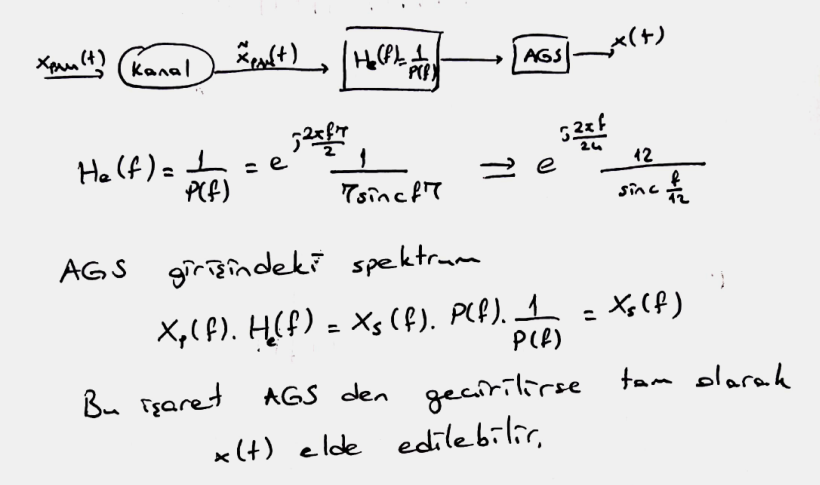 x_PAM(t) → Kanal → x̃_PAM(t) → H_e(f) = 1/P(f) → AGS → x(t)
H_e(f) = 1/P(f) = e^(j2πfτ/2) 1/(τ sinc fτ) ⇒ e^(j2πf/24) 12/(sinc f/12)
AGS girişindeki spektrum
X_p(f). H_e(f) = X_s(f). P(f). 1/P(f) = X_s(f)
Bu işaret AGS den geçirilirse tam olarak
x(t) elde edilebilir.